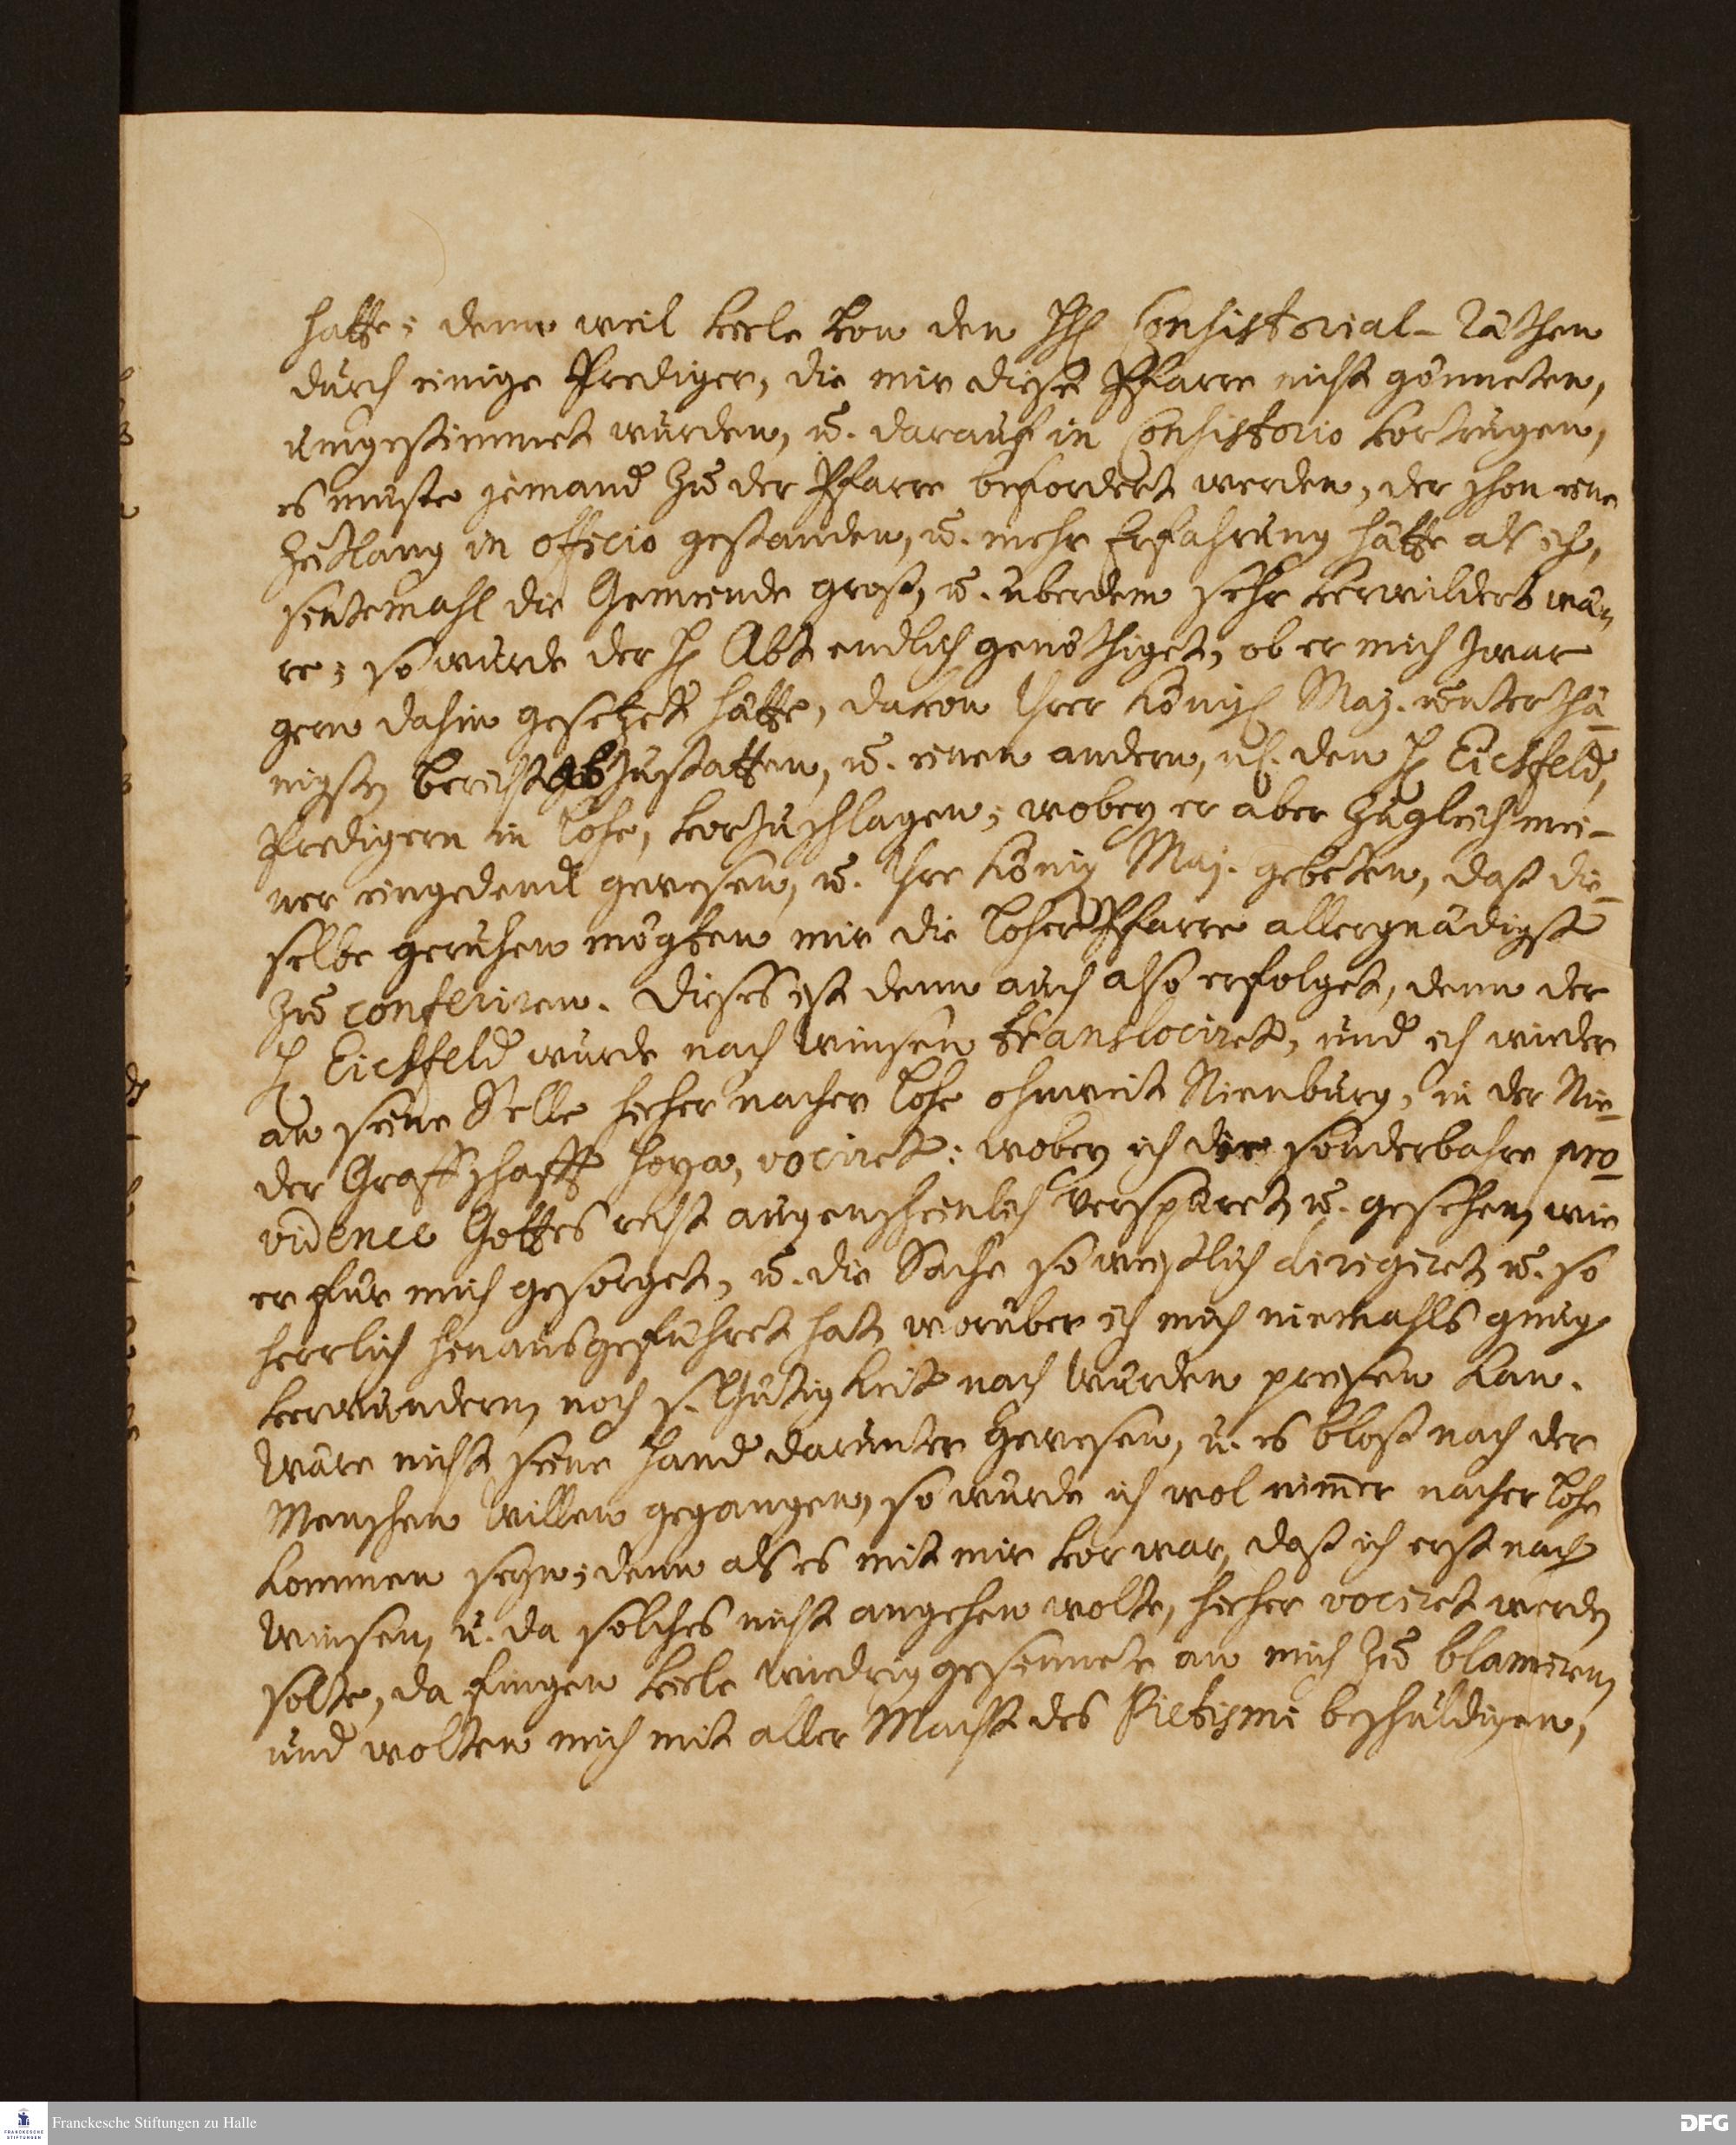 hatte; denn weil viele von den HH Consistorial-Räthen
durch einige Prediger, die mir diese Pfarre nicht gönneten,
umgestimmet wurden, u. darauf in Consistorio vortrugen,
es müste jemand zu der Pfarre befordert werden, der schon eine
Zeitlang in officio gestanden, u. mehr Erfahrung hätte als ich,
sintemahl die Gemeinde groß, u. uberdem sehr verwildert wä-
re; so wurde der H Abt endlich genöthiget, ob er mich zwar
gern dahin gesetzet hätte, davon Ihrer Königl Maj. unterthä-
nigsten bericht abzustatten, u. einen andern, nl. den H Eichfeld,
Predigern in Lohe, vorzuschlagen; wobey er aber zugleich mei-
ner eingedenck gewesen, u. Ihre König Maj. gebeten, daß die-
selbe geruhen mögten mir die Loher Pfarre allergnädigst
zu conferiren. Dieses ist denn auch also erfolget, denn der
H Eichfeld wurde nach Winsen translociret, und ich wieder
an seine Stelle hieher nacher Lohe ohnweit Nienburg, in der Nie-
der Graffschafft Hoya, vociret: wobey ich die sonderbahre pro-
vidence Gottes recht augenscheinlich verspüret u. gesehen, wie
er fur mich gesorget, u. die Sache so weißlich dirigiret u. so
herrlich hinausgeführet hat, worüber ich mich niemahls gnug
verwundern, noch s. Gütigkeit nach Wurden preisen kan.
Wäre nicht seine Hand darunter gewesen, u. es bloß nach der
Menschen Willen gegangen, so wurde ich wol nimer nacher Lohe
kommen seyn; denn als es mit mir vor war, daß ich erst nach
Winsen, u. da solches nicht angehen wolte, hieher vociret werden
solte, da fingen viele wiedrig gesinnete an mich zu blamiren,
und wolten mich mit aller Macht des Pietismi beschuldigen,
Franckesche Stiftungen zu Halle
FRANCKESCHE
STIFTUNGEN
DFG